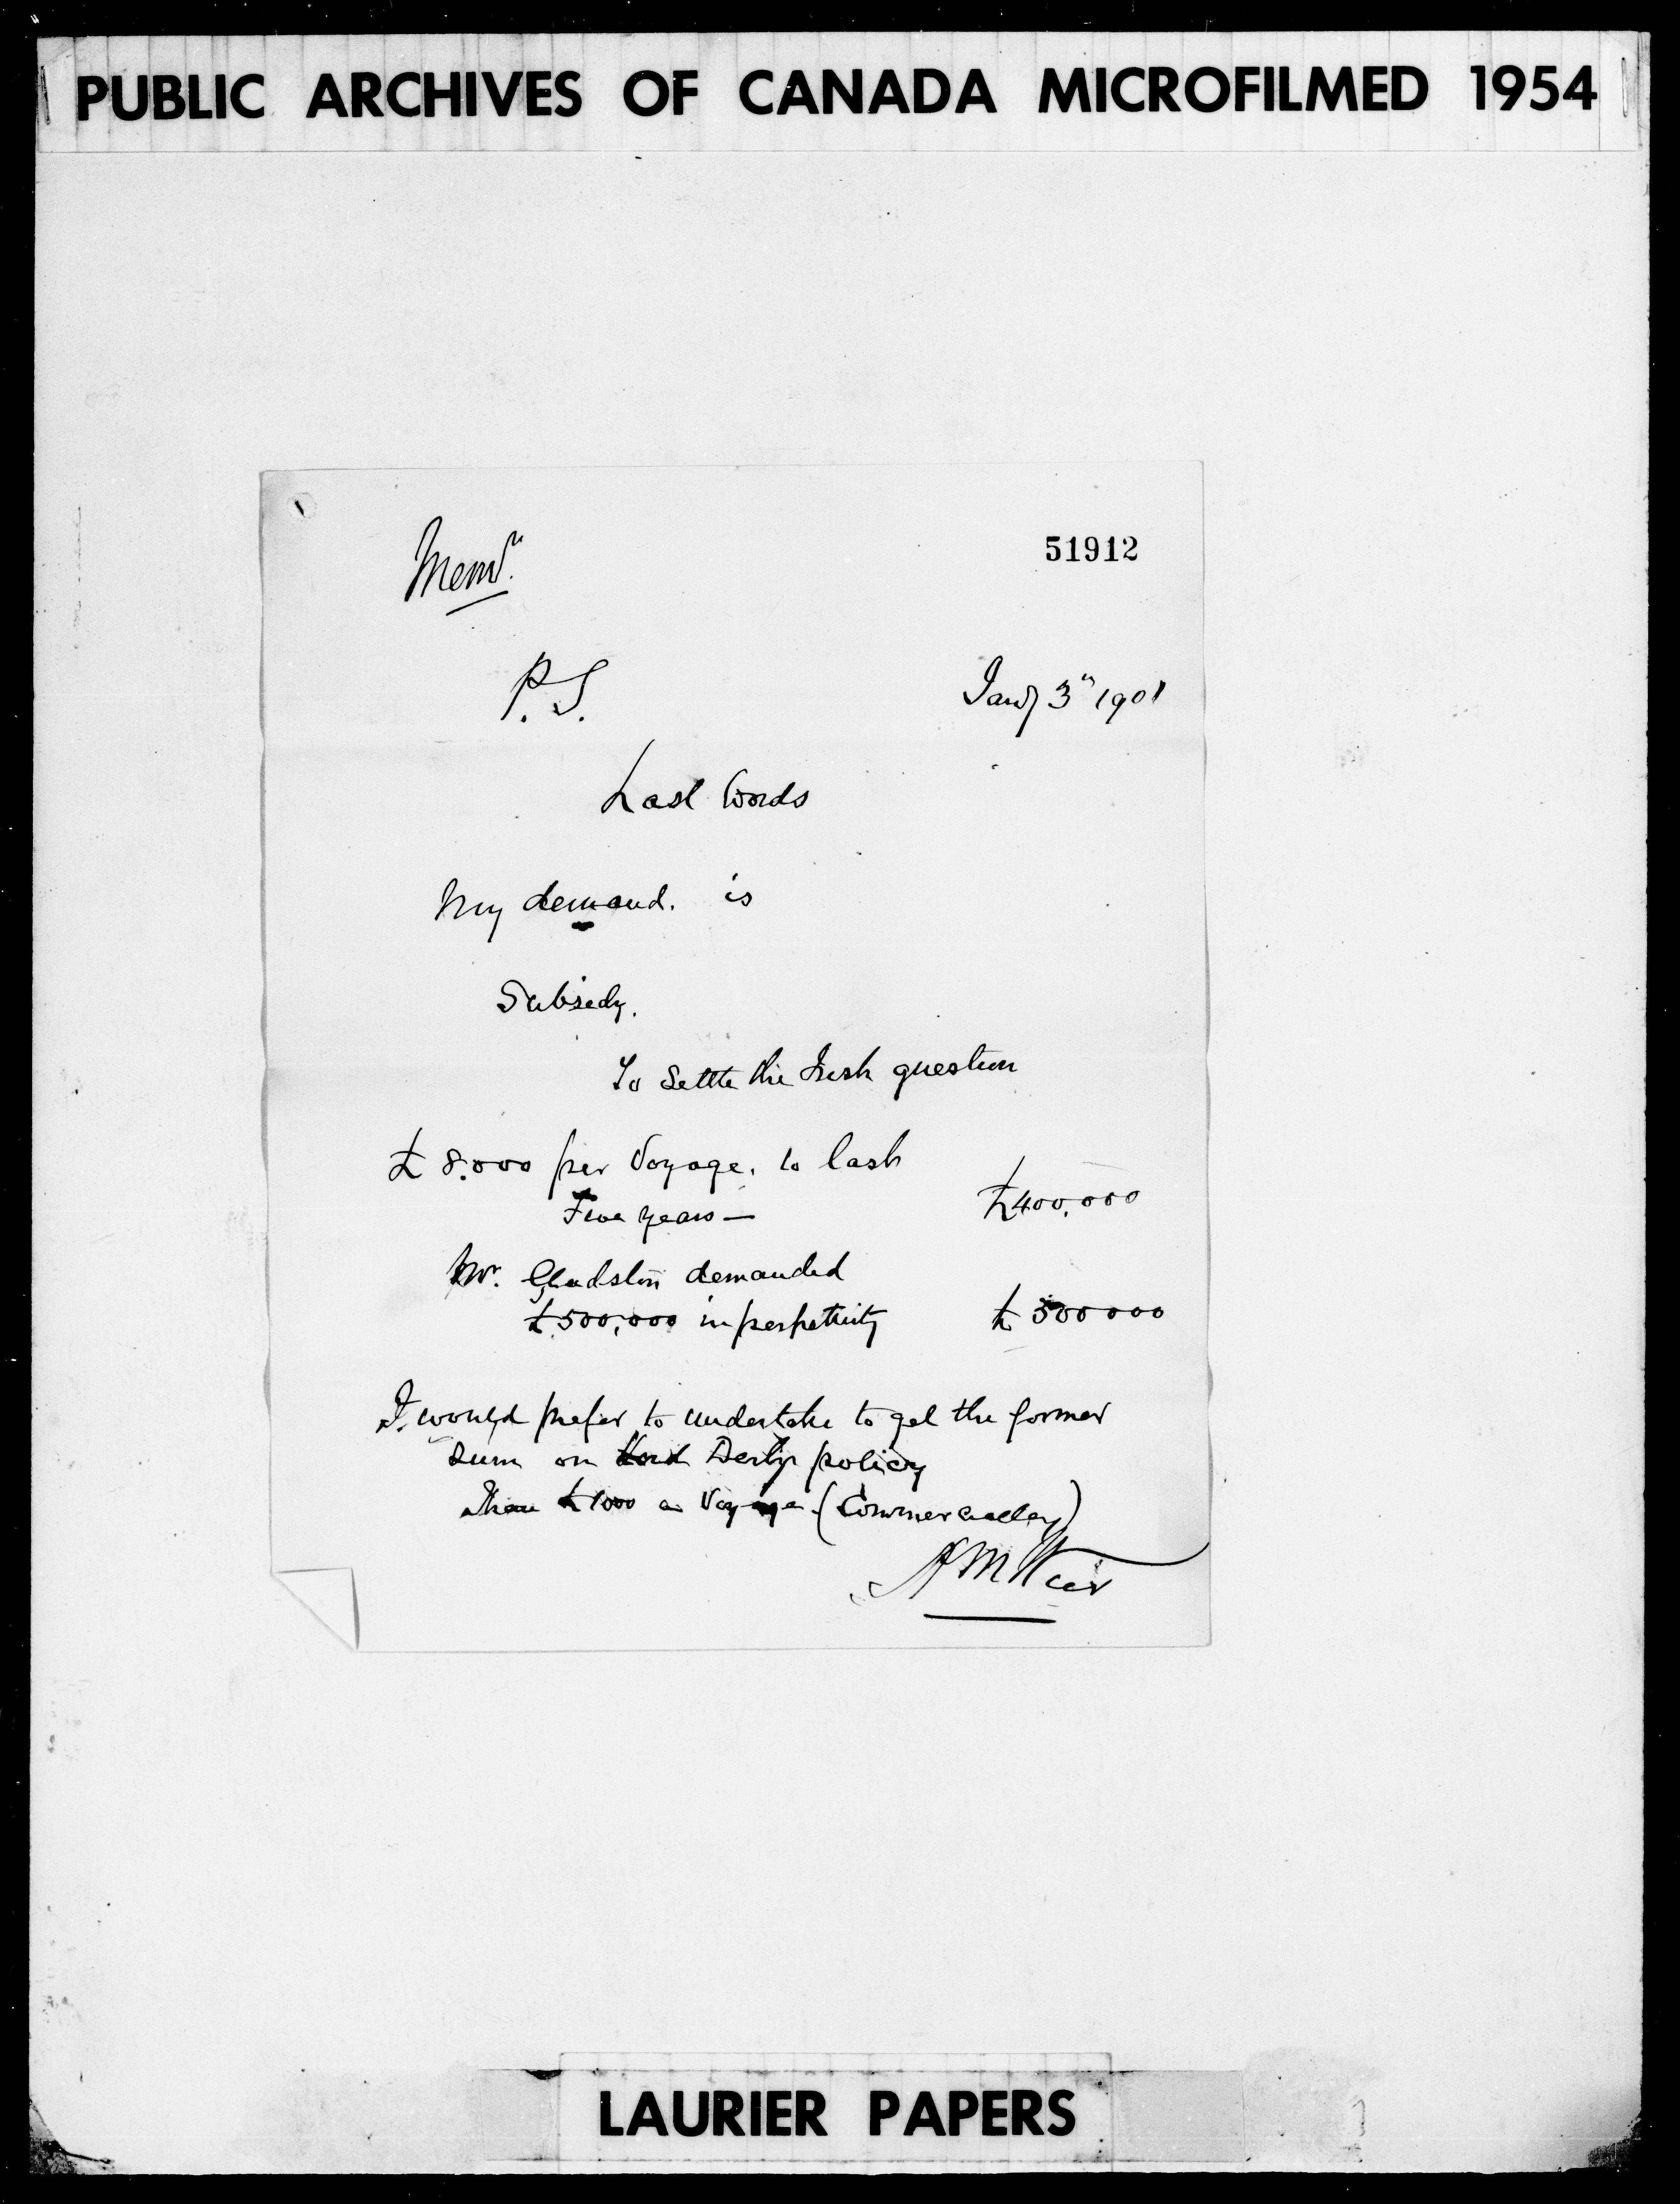 PUBLIC ARCHIVES OF CANADA MICROFILMED 1954
51912
Memdm.
P.S. Jany 3rd 1901
Last Words
My demand. is
Subsidy.
To Settle the Irish question
£ 8.000 per Voyage. to last
Five years — £400,000
Mr. Gladston demanded
£500,000 in perpetuity £ 500000
I. would prefer to undertake to get the former
Sum on Lord Derby policy
Than £1000 a Voyage (Commercially)
A M Weir
LAURIER PAPERS